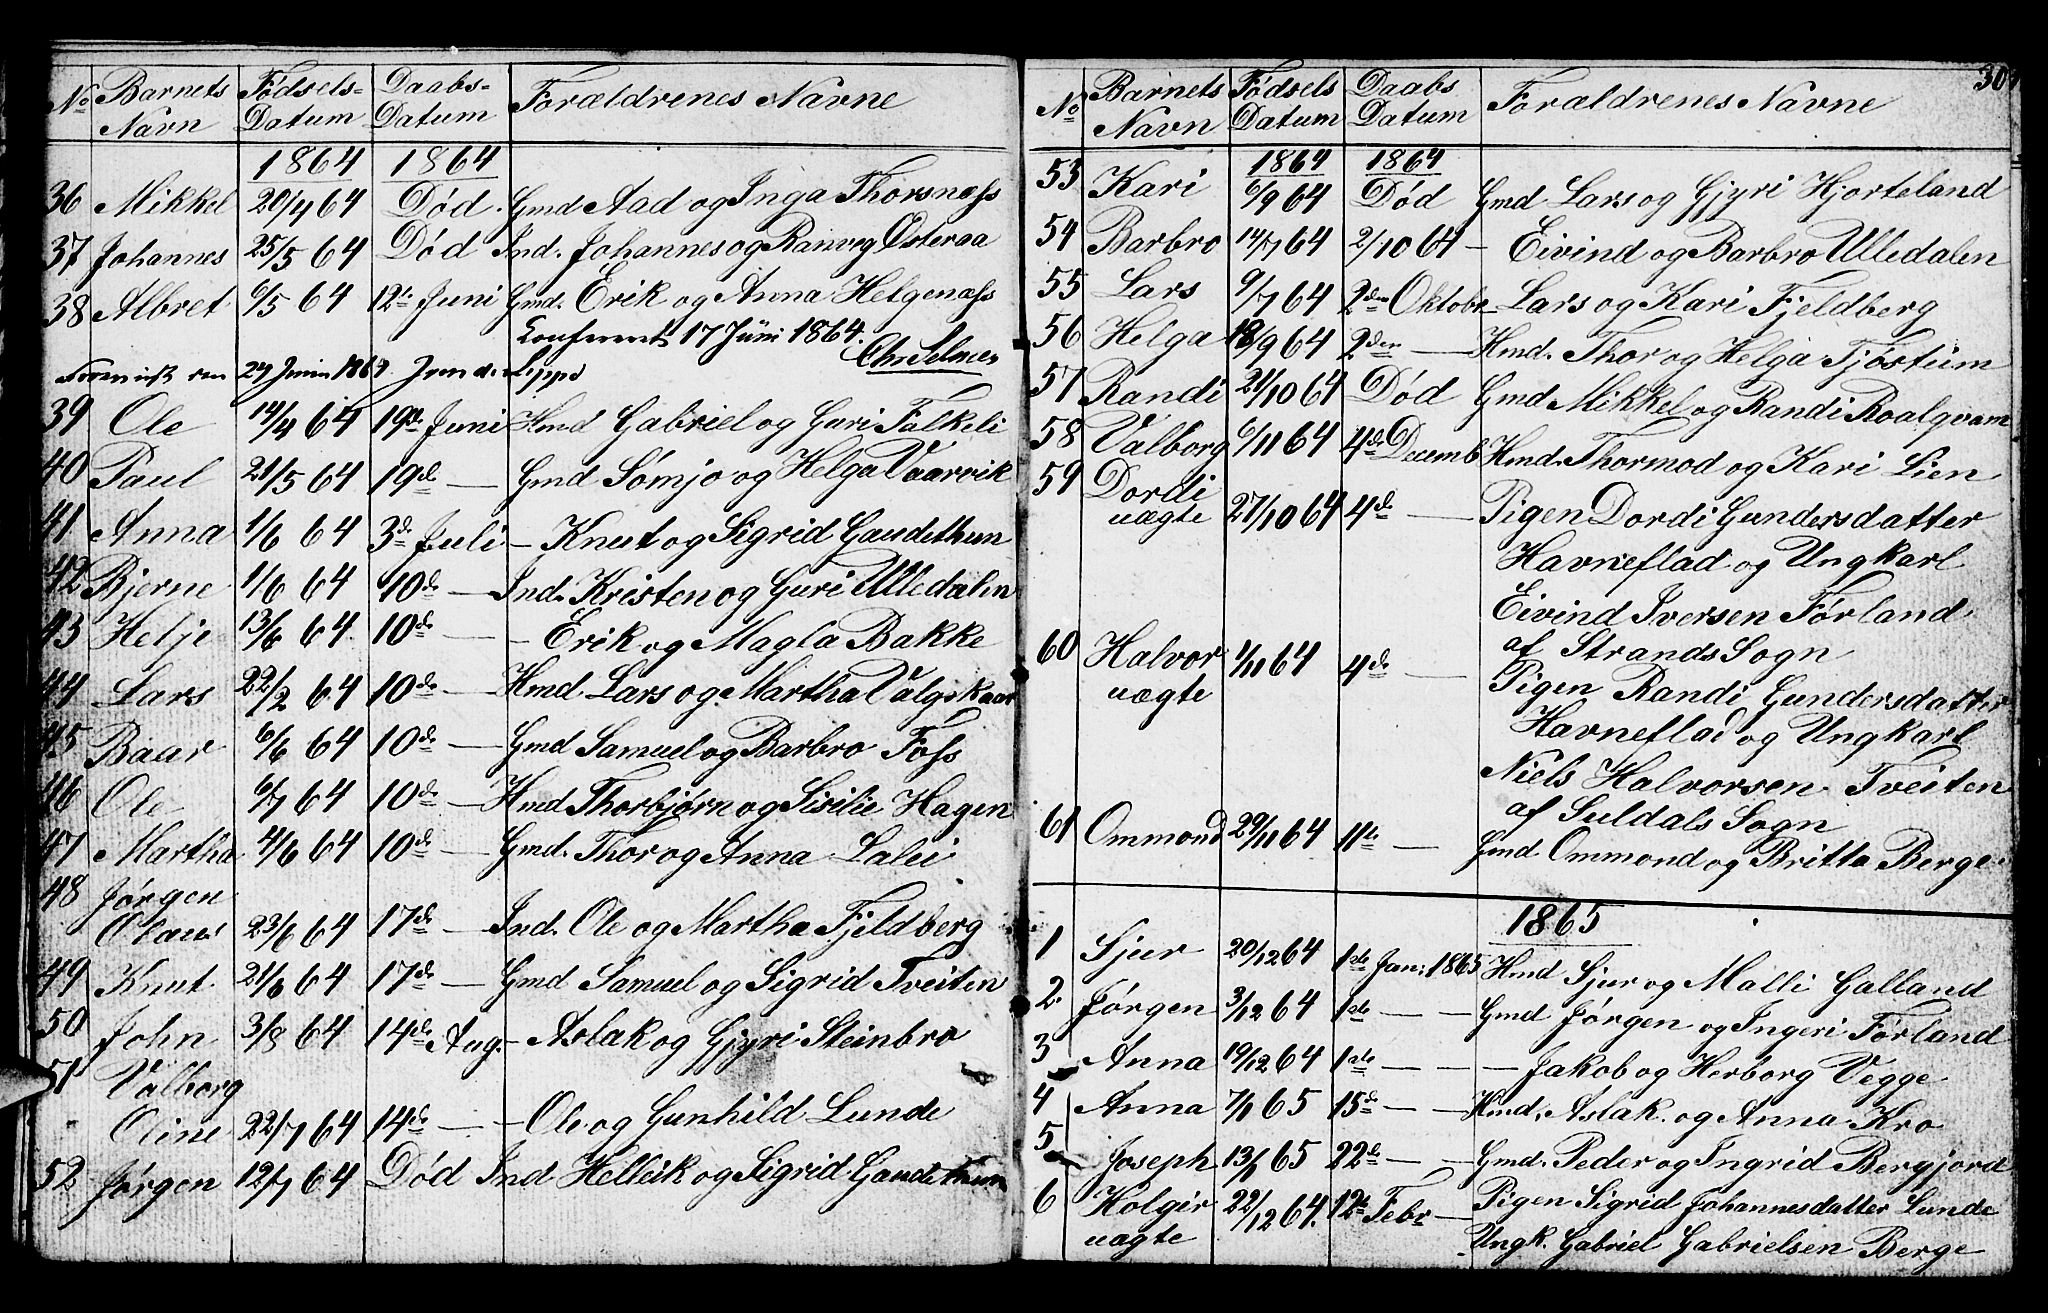 No Barnets Navn Fødsels= Datum Daabs= Datum Forældrenes Navne
1864 1864
36 Mikkel 20/4 64 Død. Gmd Aad og Inga Thorsnæss
37 Johannes 25/5 64 Død Ind. Johannes og Ranveg Østeraa
38 Albret 6/5 64 12te Juni Gmd. Erik og Anna Helgenæss
Confererit 17 Juni 1864.
Chr Selmer
27 Juni 1864
39 Ole 14/4 64 19de Juni Hmd Gabriel og Guri Falkeli
40 Paul 21/5 64 19de — Gmd Sømjo og Helga Vaarvik
41 Anna 1/6 64 3de Juli — Knut og Sigrid Gaudethun
42 Bjerne 1/6 64 10de — Ind. Kristen og Guri Ulledalen
43 Helje 13/6 64. 10de — — Erik og Magla Bakke
44 Lars 22/2 64 10de — Hmd Lars og Martha Valgskaar
45 Baar 6/6 64 10de — Gmd Samuel og Barbro Foss
46 Ole 6/7 64 10de — Hmd Thorbjørn og Sisilie Hagen
47 Martha 4/6 64 10de — Gmd. Thor og Anna Lalei
48 Jørgen
Olaus 23/6 64 17de — Ind. Ole og Martha Fjeldberg
49 Knut 21/6 64 17de — Gmd Samuel og Sigrid Tveiten
50 John 3/8 64 14de Aug. — Aslak og Gjyri Steinbro
51 Valborg
Oline 22/7 64 14de — — Ole og Gunhild Lunde
52 Jørgen 12/7 64 Død Ind Helleik og Sigrid Gaudethun
30
No Barnets Navn Fødsels Datum Daabs Datum Forældrenes Navne
1864 1864
53 Kari 6/9 64 Død Gmd Lars og Gjyri Hjorteland
54 Barbro 14/7 64 2/10 64 — Eivind og Barbro Ulledalen
55 Lars 9/7 64 2den Oktobr — Lars og Kari Fjeldberg
56 Helga 18/9 64 2den — Hmd. Thor og Helga Tjøstum
57 Randi 21/10 64 Død Gmd Mikkel og Randi Roalqvam
58 Valborg 6/11 64 4de Decemb Hmd. Thormod og Kari Lien
59 Dordi
uægte 27/10 64 4de — Pigen Dordi Gundersdatter
Havneflad og Ungkarl
Eivind Iversen Førland
af Strands Sogn
60 Halvor 1/11 64 4de — Pigen Randi Gundersdatter
uægte Havneflad og Ungkarl
Niels Halvorsen Tveiten
af Suldals Sogn
61 Ommond 29/11 64 11te — Gmd Ommond og Britta Berge.
1865
1 Sjur 20/12 64 1ste Jan: 1865 Hmd Sjur og Malli Galland
2. Jørgen 3/12 64 1ste — — Gmd Jørgen og Ingeri Førland
3 Anna 19/12 64 1ste — — — Jakob og Herborg Vegge
4 Anna 7/1 65 15de — — Hmd, Aslak. og Anna Kro
5 Joseph 13/1 65 22de — — Gmd. Peder og Ingrid Bergjord
6 Holgir 22/12 64. 12te Febr — Pigen Sigrid Johannesdatter Lunde
uægte Ungk. Gabriel Gabrielsen Berge